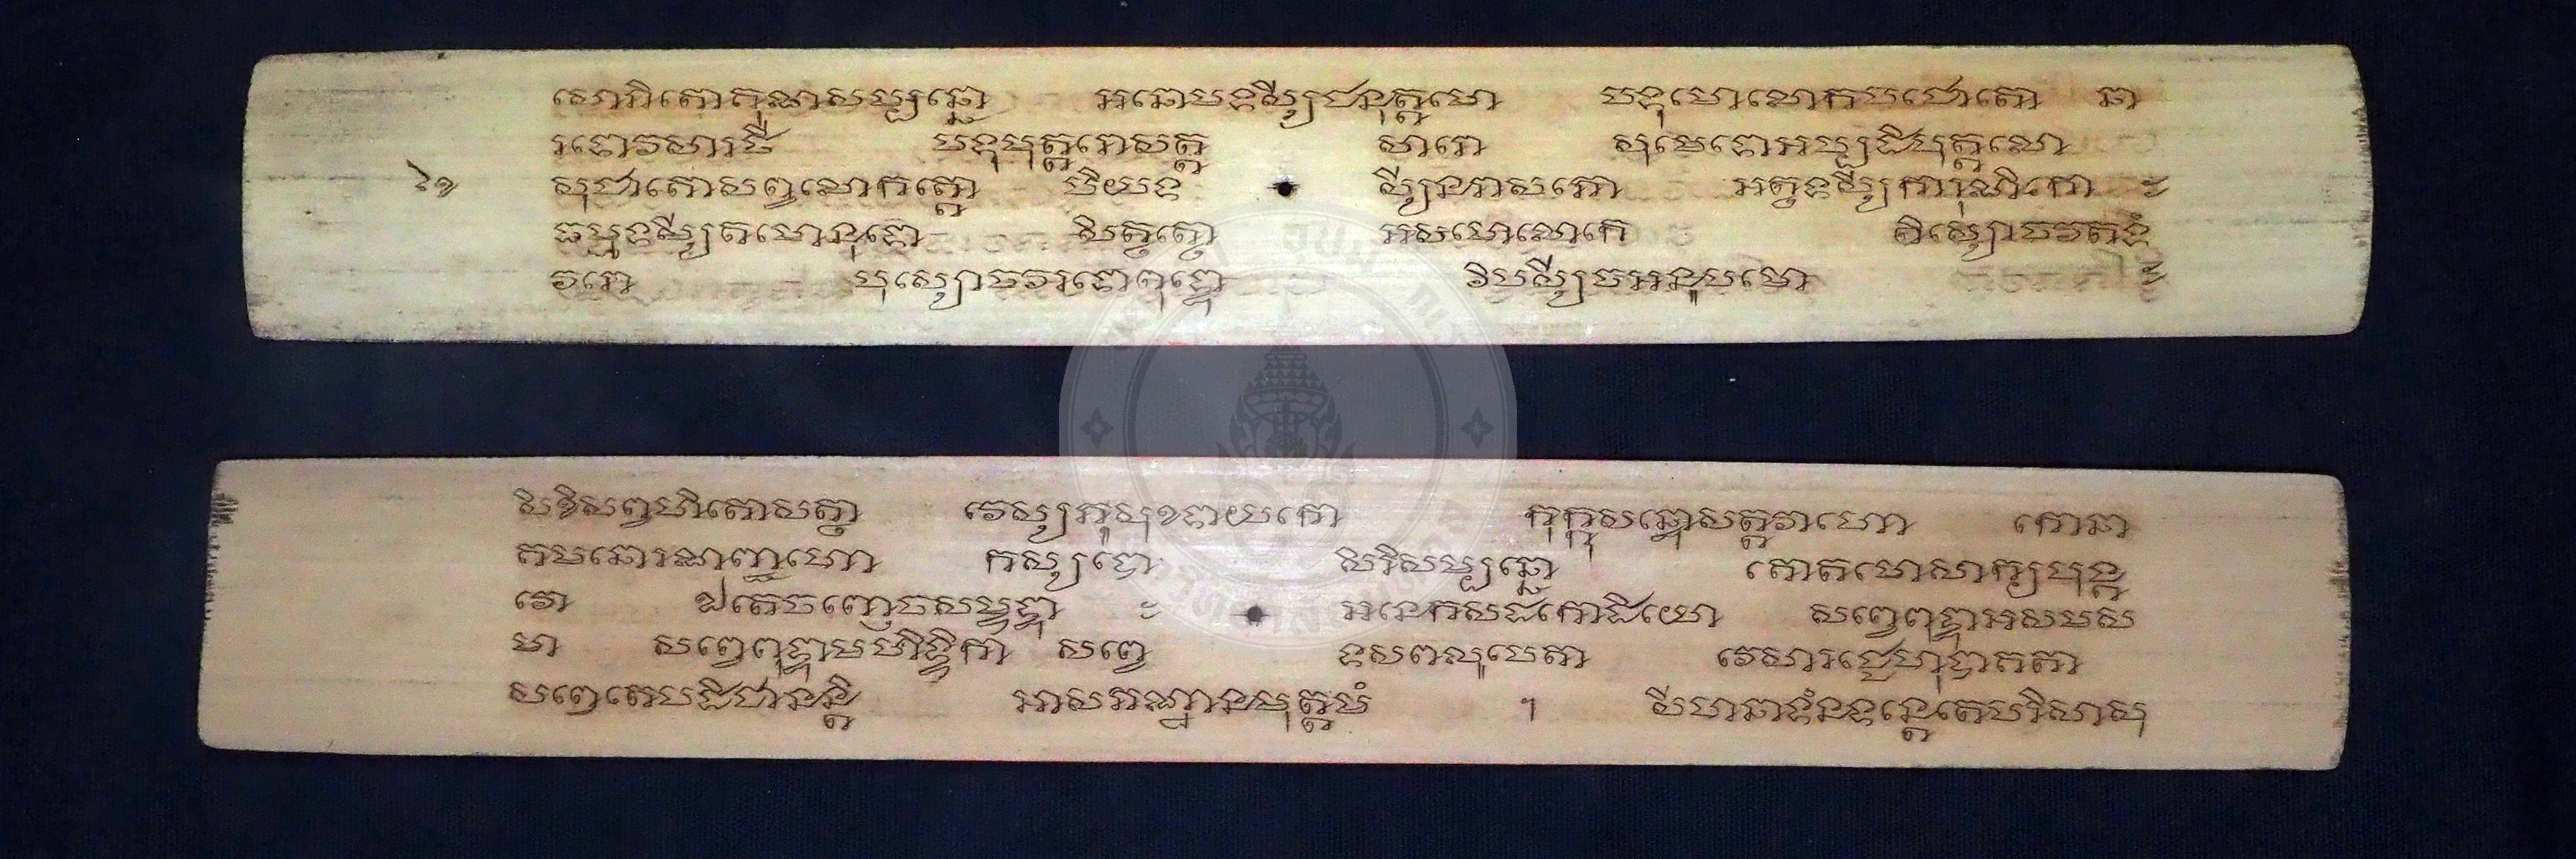 សោភិតោគុណសម្បន្នោ អនោមទស្សីជនុត្តមោ បទុមោលោកបជោតោ នា
រទោវរសារថី បទុមុត្តរោសត្ត សារោ សុមេទោអប្បដិបុគ្គលោ
សុជាតោសព្វលោកគ្គោ បិយទ ស្សីនរាសភោ អត្ថទស្សីការុណិកោ ៈ
ធម្មទស្សីតមោនុទោ សិទ្ធត្ថោ អសមោលោកេ តិស្សោចវទតំ
វរោ បុស្សោចវរទោពុទ្ធោ វិបស្សីចអនូបមោ ៈ
សិខីសព្វហិតោសត្ថា វេស្សភូសុខទាយកោ កុក្កុសន្ធោសត្ថវាហោ កោនា
គមនោរណញ្ជហោ កស្សបោ សិរិសម្បន្នោ គោតមោសាក្យបុង្គ
វោ ឯតេចញ្ញេចសម្ពុទ្ធា ៈ អនេកសតកោដិយោ សព្វេពុទ្ធាអសមស
មា សព្វេពុទ្ធាមហិទ្ធិកា សព្វេ ទសពលូបេតា វេសារជ្ជេហុបាគតា
សព្វេតេបដិជានន្តិ អាសភណ្ឋានមុត្តមំ ។ សីហនាទំនទន្តេតេបរិសាសុ